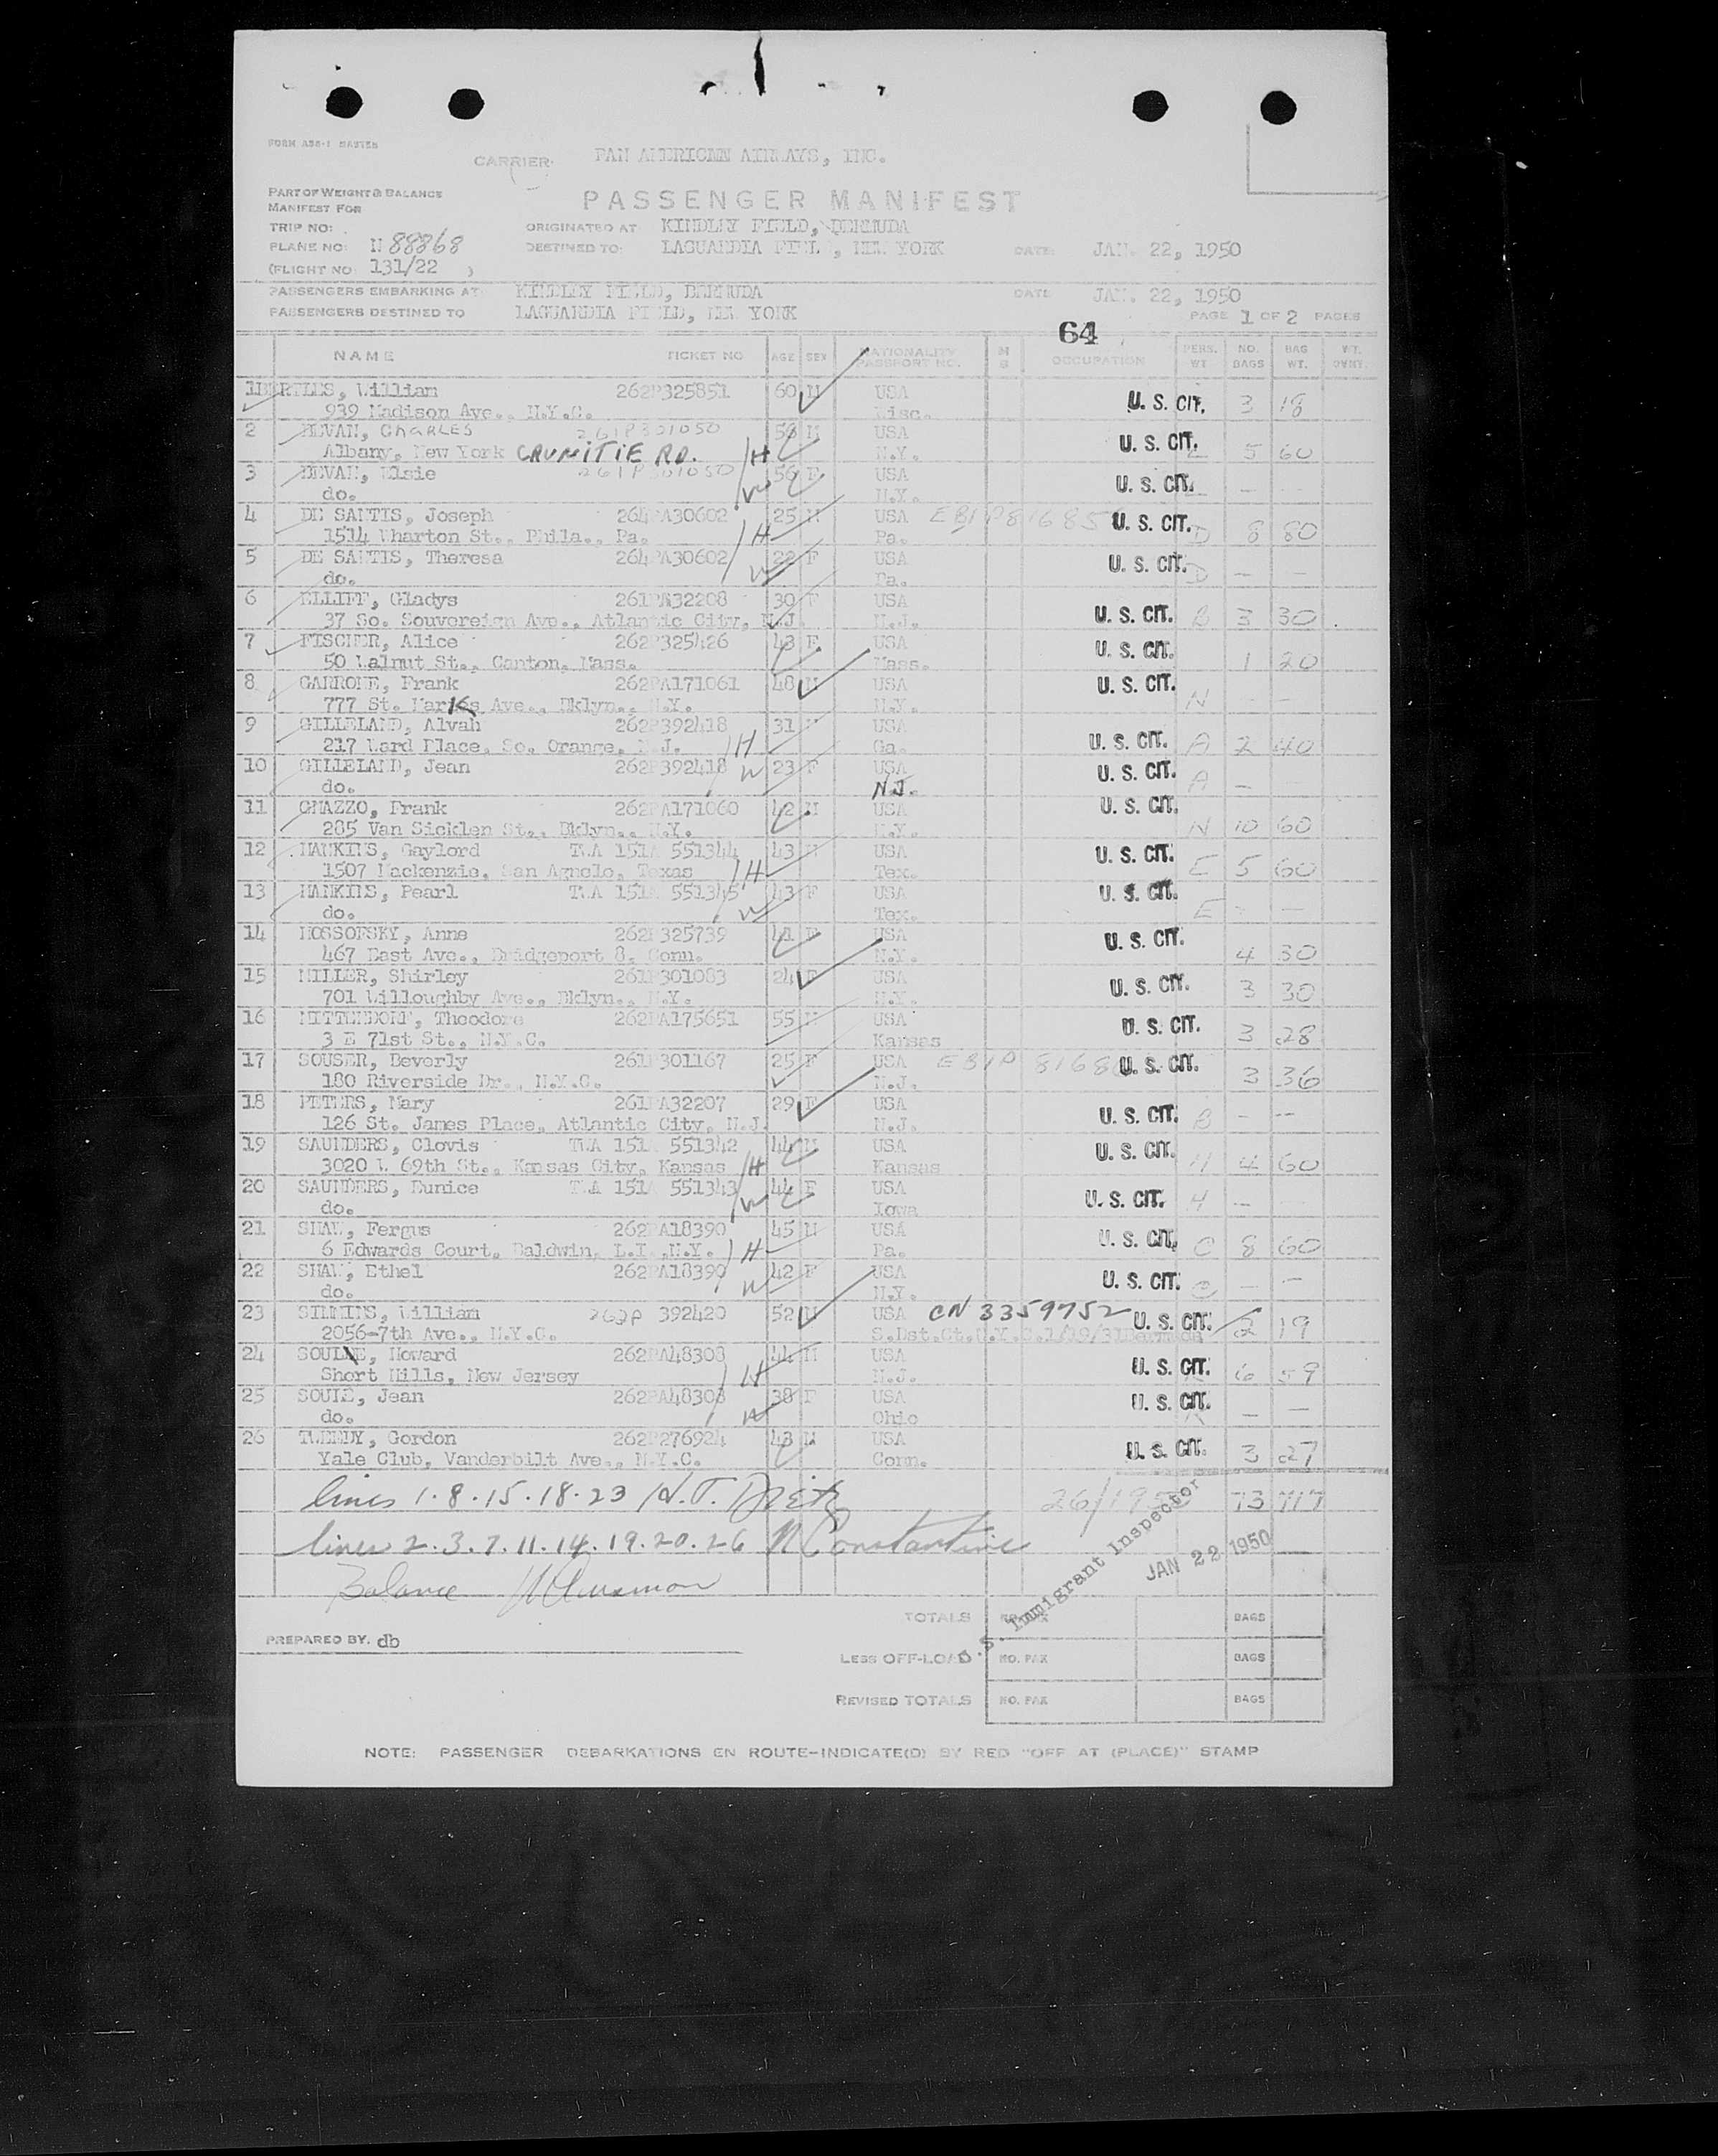 FORM
CARRIER: PAN AMERICAN AIRWAYS, INC.
PART OF WEIGHT & BALANCE
MANIFEST FOR
PASSENGER MANIFEST
TRIP NO:
ORIGINATED AT KINDLEY FIELD, BERMUDA
PLANE NO: N 88868
DESTINED TO: LAGUARDIA FIELD, NEW YORK DATE: JAN. 22, 1950
(FLIGHT NO 131/22 )
PASSENGERS EMBARKING AT KINDLEY FIELD, BERMUDA DATE JAN. 22, 1950
PASSENGERS DESTINED TO LAGUARDIA FIELD, NEW YORK PAGE 1 OF 2 PAGES
64
NAME TICKET NO AGE SEX NATIONALITY PASSPORT NO. OCCUPATION PERS. WT NO. BAGS BAG WT. WT. DWNY.
1 William 262P325851 60 M USA
939 Madison Ave., N.Y.C. Wisc. U. S. CIT. 3 18
2 BEVAN, CHARLES 261P301050 58 M USA
Albany, New York RD. H N.Y. U. S. CIT. 5 60
3 BEVAN, Elsie 261P301050 56 F USA
do. W N.Y. U. S. CIT. - -
4 DE SANTIS, Joseph 264PA30602 25 M USA U. S. CIT.
1514 Wharton St., Phila., Pa. H Pa. D 8 80
5 DE SANTIS, Theresa 264PA30602 22 F USA U. S. CIT.
do. W Pa. D - -
6 ELLIFF, Gladys 261PA32208 30 F USA
37 So. Souvereign Ave., Atlantic City, N.J. N.J. U. S. CIT. B 3 30
7 FISCHER, Alice 262P325426 43 F USA U. S. CIT.
50 Walnut St., Canton, Mass. Mass. 1 20
8 GARRONE, Frank 262PA171061 48 M USA U. S. CIT.
777 St. Marks Ave., Bklyn., N.Y. N.Y. N - -
9 GILLELAND, Alvah 262P392418 31 M USA
217 Ward Place, So. Orange, N.J. H Ga. U. S. CIT. A 2 40
10 GILLELAND, Jean 262P392418 W 23 F USA U. S. CIT.
do. N.J. A - -
11 GHAZZO, Frank 262PA171060 42 M USA U. S. CIT.
285 Van Sicklen St., Bklyn., N.Y. N.Y. N 10 60
12 HANKINS, Gaylord TWA 151A 551344 43 M USA U. S. CIT.
1507 Mackenzie, San Agnelo, Texas H Tex. E 5 60
13 HANKINS, Pearl TWA 151A 551345 43 F USA U. S. CIT.
do. W Tex. E - -
14 Anne 262P325739 41 F USA U. S. CIT.
467 East Ave., Bridgeport 8, Conn. N.Y. 4 30
15 MILLER, Shirley 261P301083 24 F USA
701 Willoughby Ave., Bklyn., N.Y. N.Y. U. S. CIT. 3 30
16 MITTENDORF, Theodore 262PA175651 55 M USA U. S. CIT.
3 E 71st St., N.Y.C. Kansas 3 28
17 SOUSER, Beverly 261P301167 25 F USA U. S. CIT.
180 Riverside Dr., N.Y.C. N.J. 3 36
18 PETERS, Mary 261PA32207 29 F USA
126 St. James Place, Atlantic City, N.J. N.J. U. S. CIT. B - -
19 SAUNDERS, Clovis TWA 151A 551342 44 M USA U. S. CIT.
3020 W. 69th St., Kansas City, Kansas H Kansas H 4 60
20 SAUNDERS, Eunice TWA 151A 551343 44 F USA
do. W Iowa U. S. CIT. H - -
21 SHAW, Fergus 262PA18390 45 M USA U. S. CIT.
6 Edwards Court, Baldwin, L.I.,N.Y. H Pa. C 8 60
22 SHAW, Ethel 262PA18390 42 F USA U. S. CIT.
do. W N.Y. C - -
23 SIMMINS, William 262P 392420 52 M USA CN 3359752 U. S. CIT.
2056-7th Ave., N.Y.C. S.Dst.Ct.N.Y.C.1/19/31 Bermuda 2 19
24 Howard 262PA48308 41 M USA U. S. CIT.
Short Hills, New Jersey H N.J. 6 59
25 SOULE, Jean 262PA48308 38 F USA U. S. CIT.
do. W Ohio - -
26 TWEEDY, Gordon 262P276924 43 M USA U. S. CIT.
Yale Club, Vanderbilt Ave., N.Y.C. Conn. 3 27
lines 1.8.15.18.23 H.T. Dietz 73 717
lines 2.3.7.11.14.19.20.26 N Constantine
Balance
U.S. Immigrant Inspector
JAN 22 1950
TOTALS NO. PAX BAGS
PREPARED BY. db
LESS OFF-LOAD NO. PAX BAGS
REVISED TOTALS NO. PAX BAGS
NOTE: PASSENGER DEBARKATIONS EN ROUTE-INDICATE(D) BY RED "OFF AT (PLACE)" STAMP